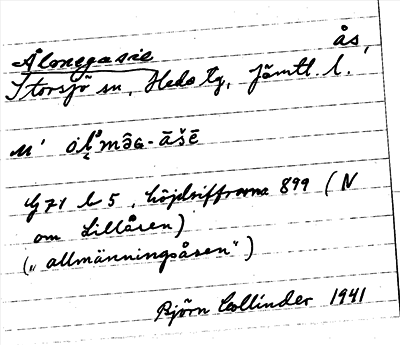 Ålonegasie ås,
Storsjö sn, Hede tg, Jämtl. l.
m' ò mâɢ-āšē
Gg 71 b 5, höjdsiffrorna 899 (N
om Lillåsen)
(„allmänningsåsen")
Björn Collinder 1941